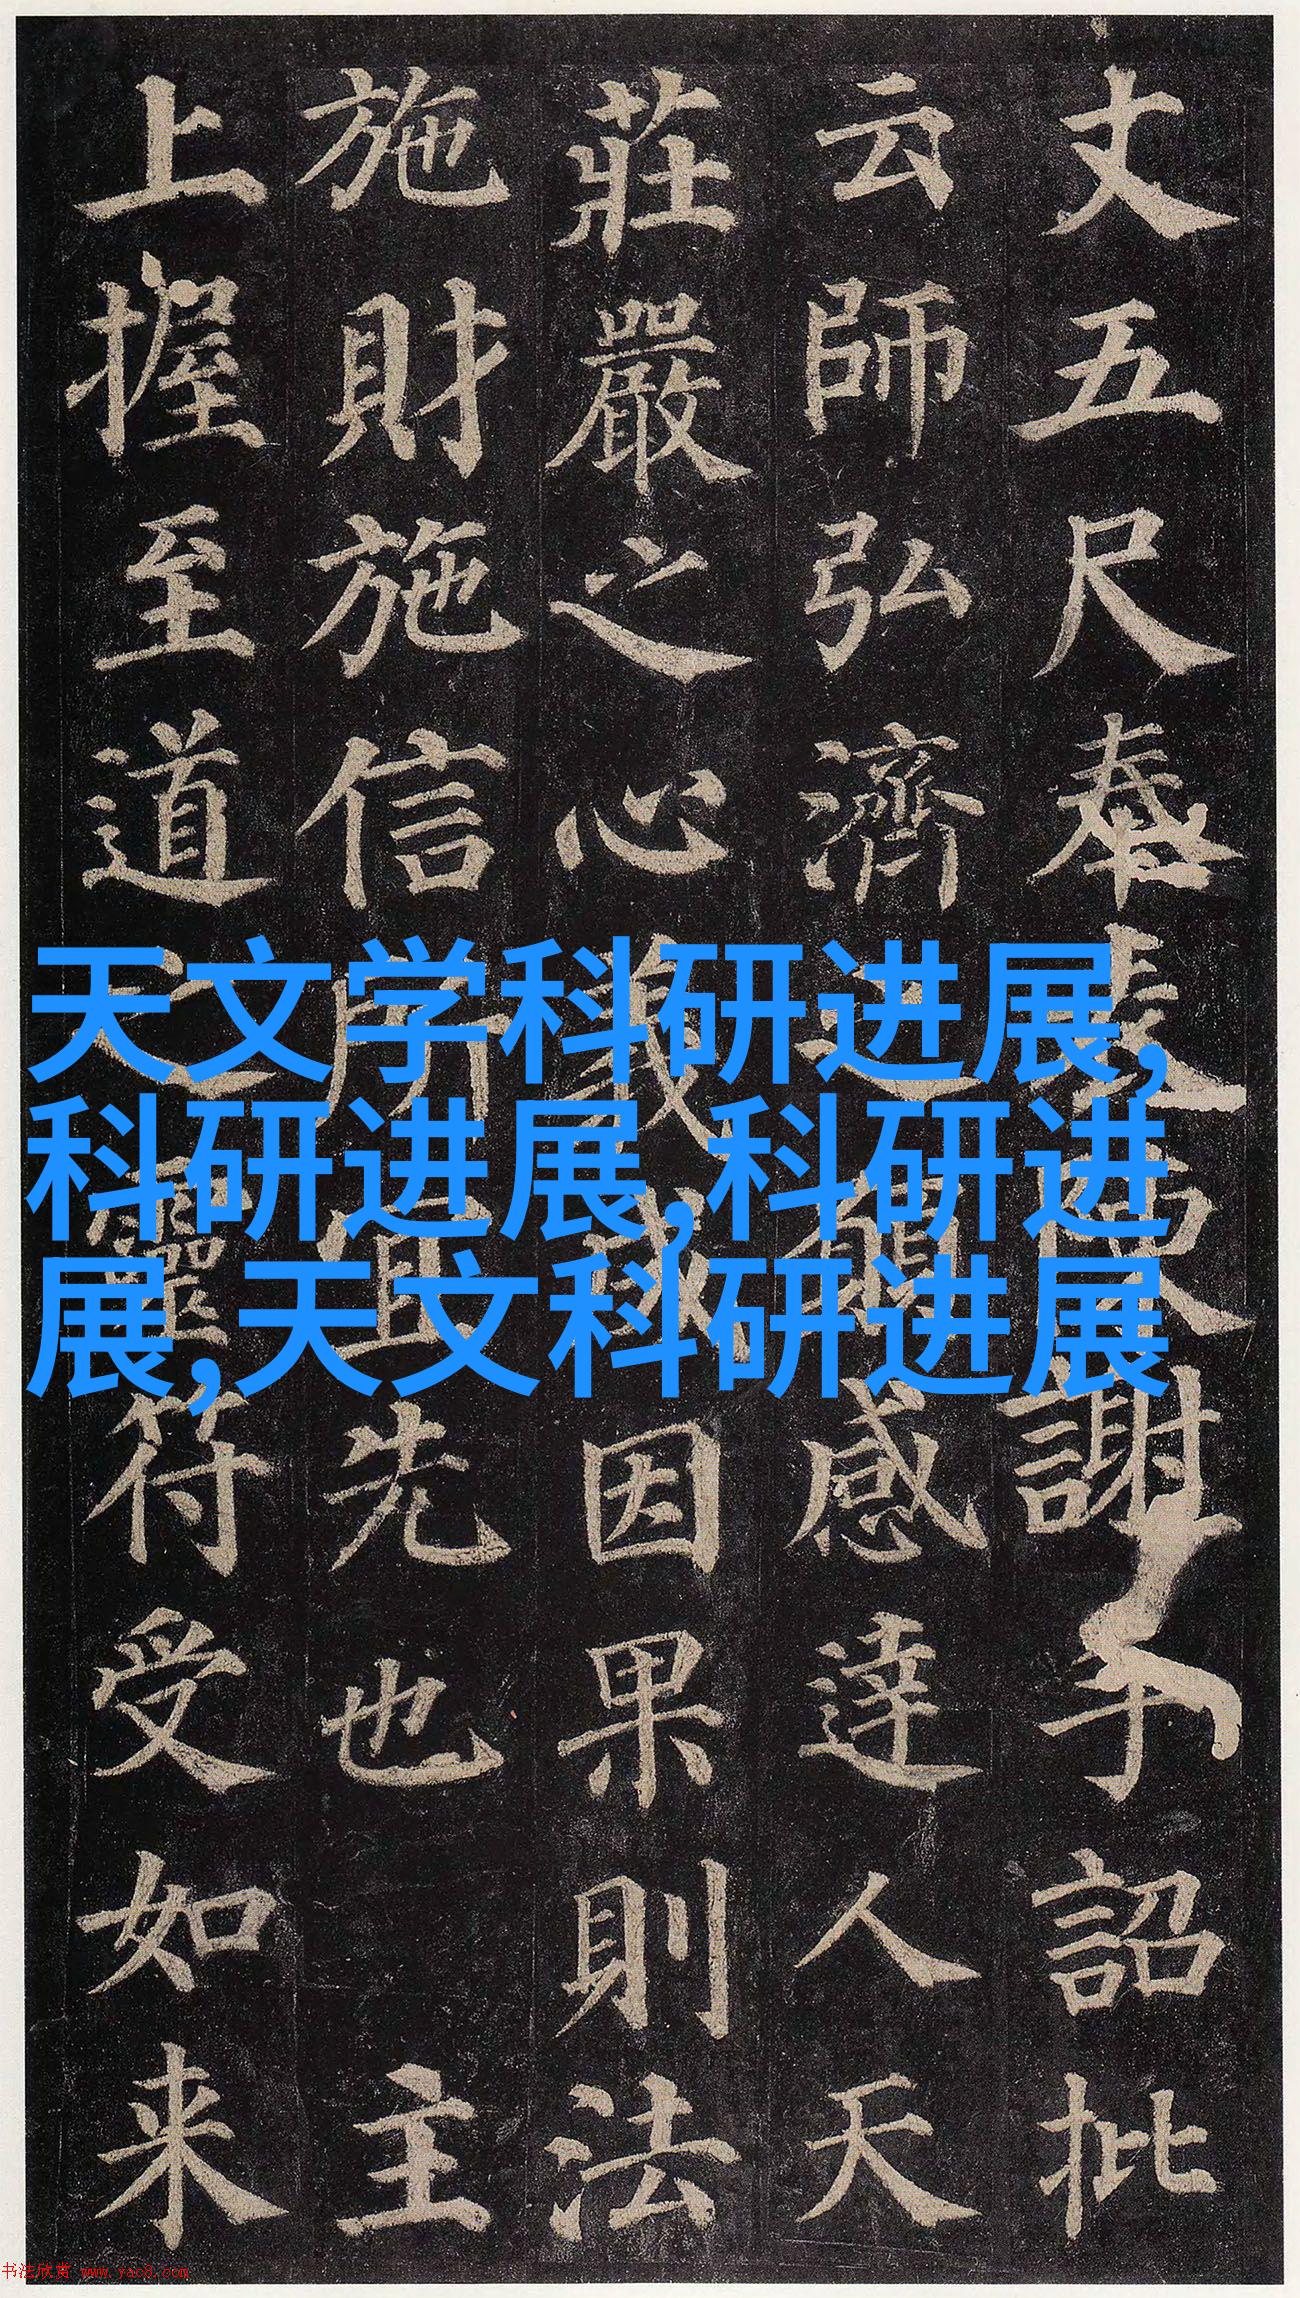 丈五尺奉表陳謝手詔批
云師弘濟之願感達人天
莊嚴之心義成因果則法
施財施信所宜先也 主
上握至道之靈符受如来
天文学科研进展,
科研进展,科研进
展,天文科研进展
书法欣赏 www.yac8.com